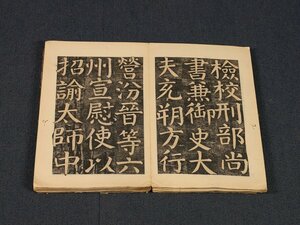 檢校刑部尚
書兼御史大
夫充朔方行
營汾晉等六
州宣慰使以
招諭太師中